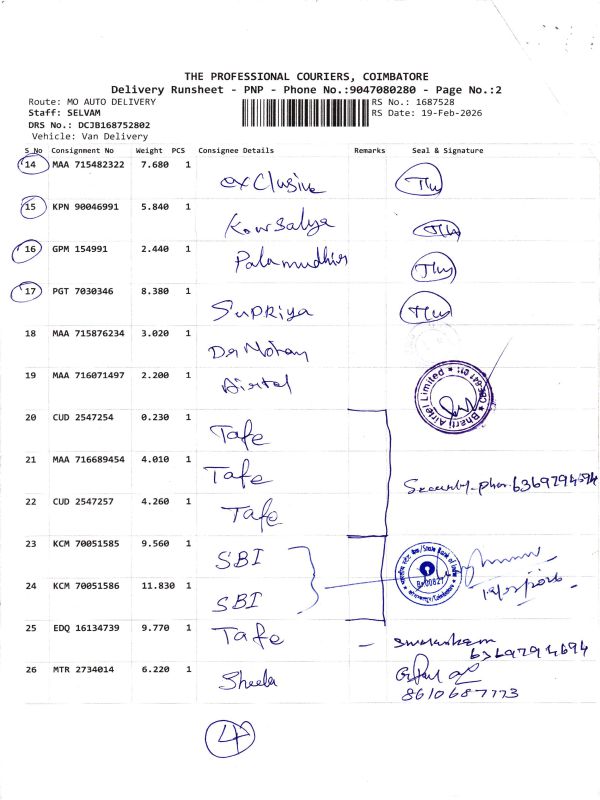 THE PROFESSIONAL COURIERS, COIMBATORE
Delivery Runsheet - PNP - Phone No.:9047080280 - Page No.:2
Route: MO AUTO DELIVERY
Staff: SELVAM
DRS No.: DCJB168752802
Vehicle: Van Delivery
RS No.: 1687528
RS Date: 19-Feb-2026
S_No Consignment No Weight PCS Consignee Details Remarks Seal & Signature
14 MAA 715482322 7.680 1 exClusive
15 KPN 90046991 5.840 1 Kowsalya
16 GPM 154991 2.440 1 Palamudhir
17 PGT 7030346 8.380 1 Supriya
18 MAA 715876234 3.020 1 Dr Mohan
19 MAA 716071497 2.200 1 Airtel
Bharti Airtel Limited
20 CUD 2547254 0.230 1 Tafe
21 MAA 716689454 4.010 1 Tafe
22 CUD 2547257 4.260 1 Tafe
23 KCM 70051585 9.560 1 SBI
State Bank of India
24 KCM 70051586 11.830 1 SBI
25 EDQ 16134739 9.770 1 Tafe -
6369794694
26 MTR 2734014 6.220 1 Sheela
8610687773
4